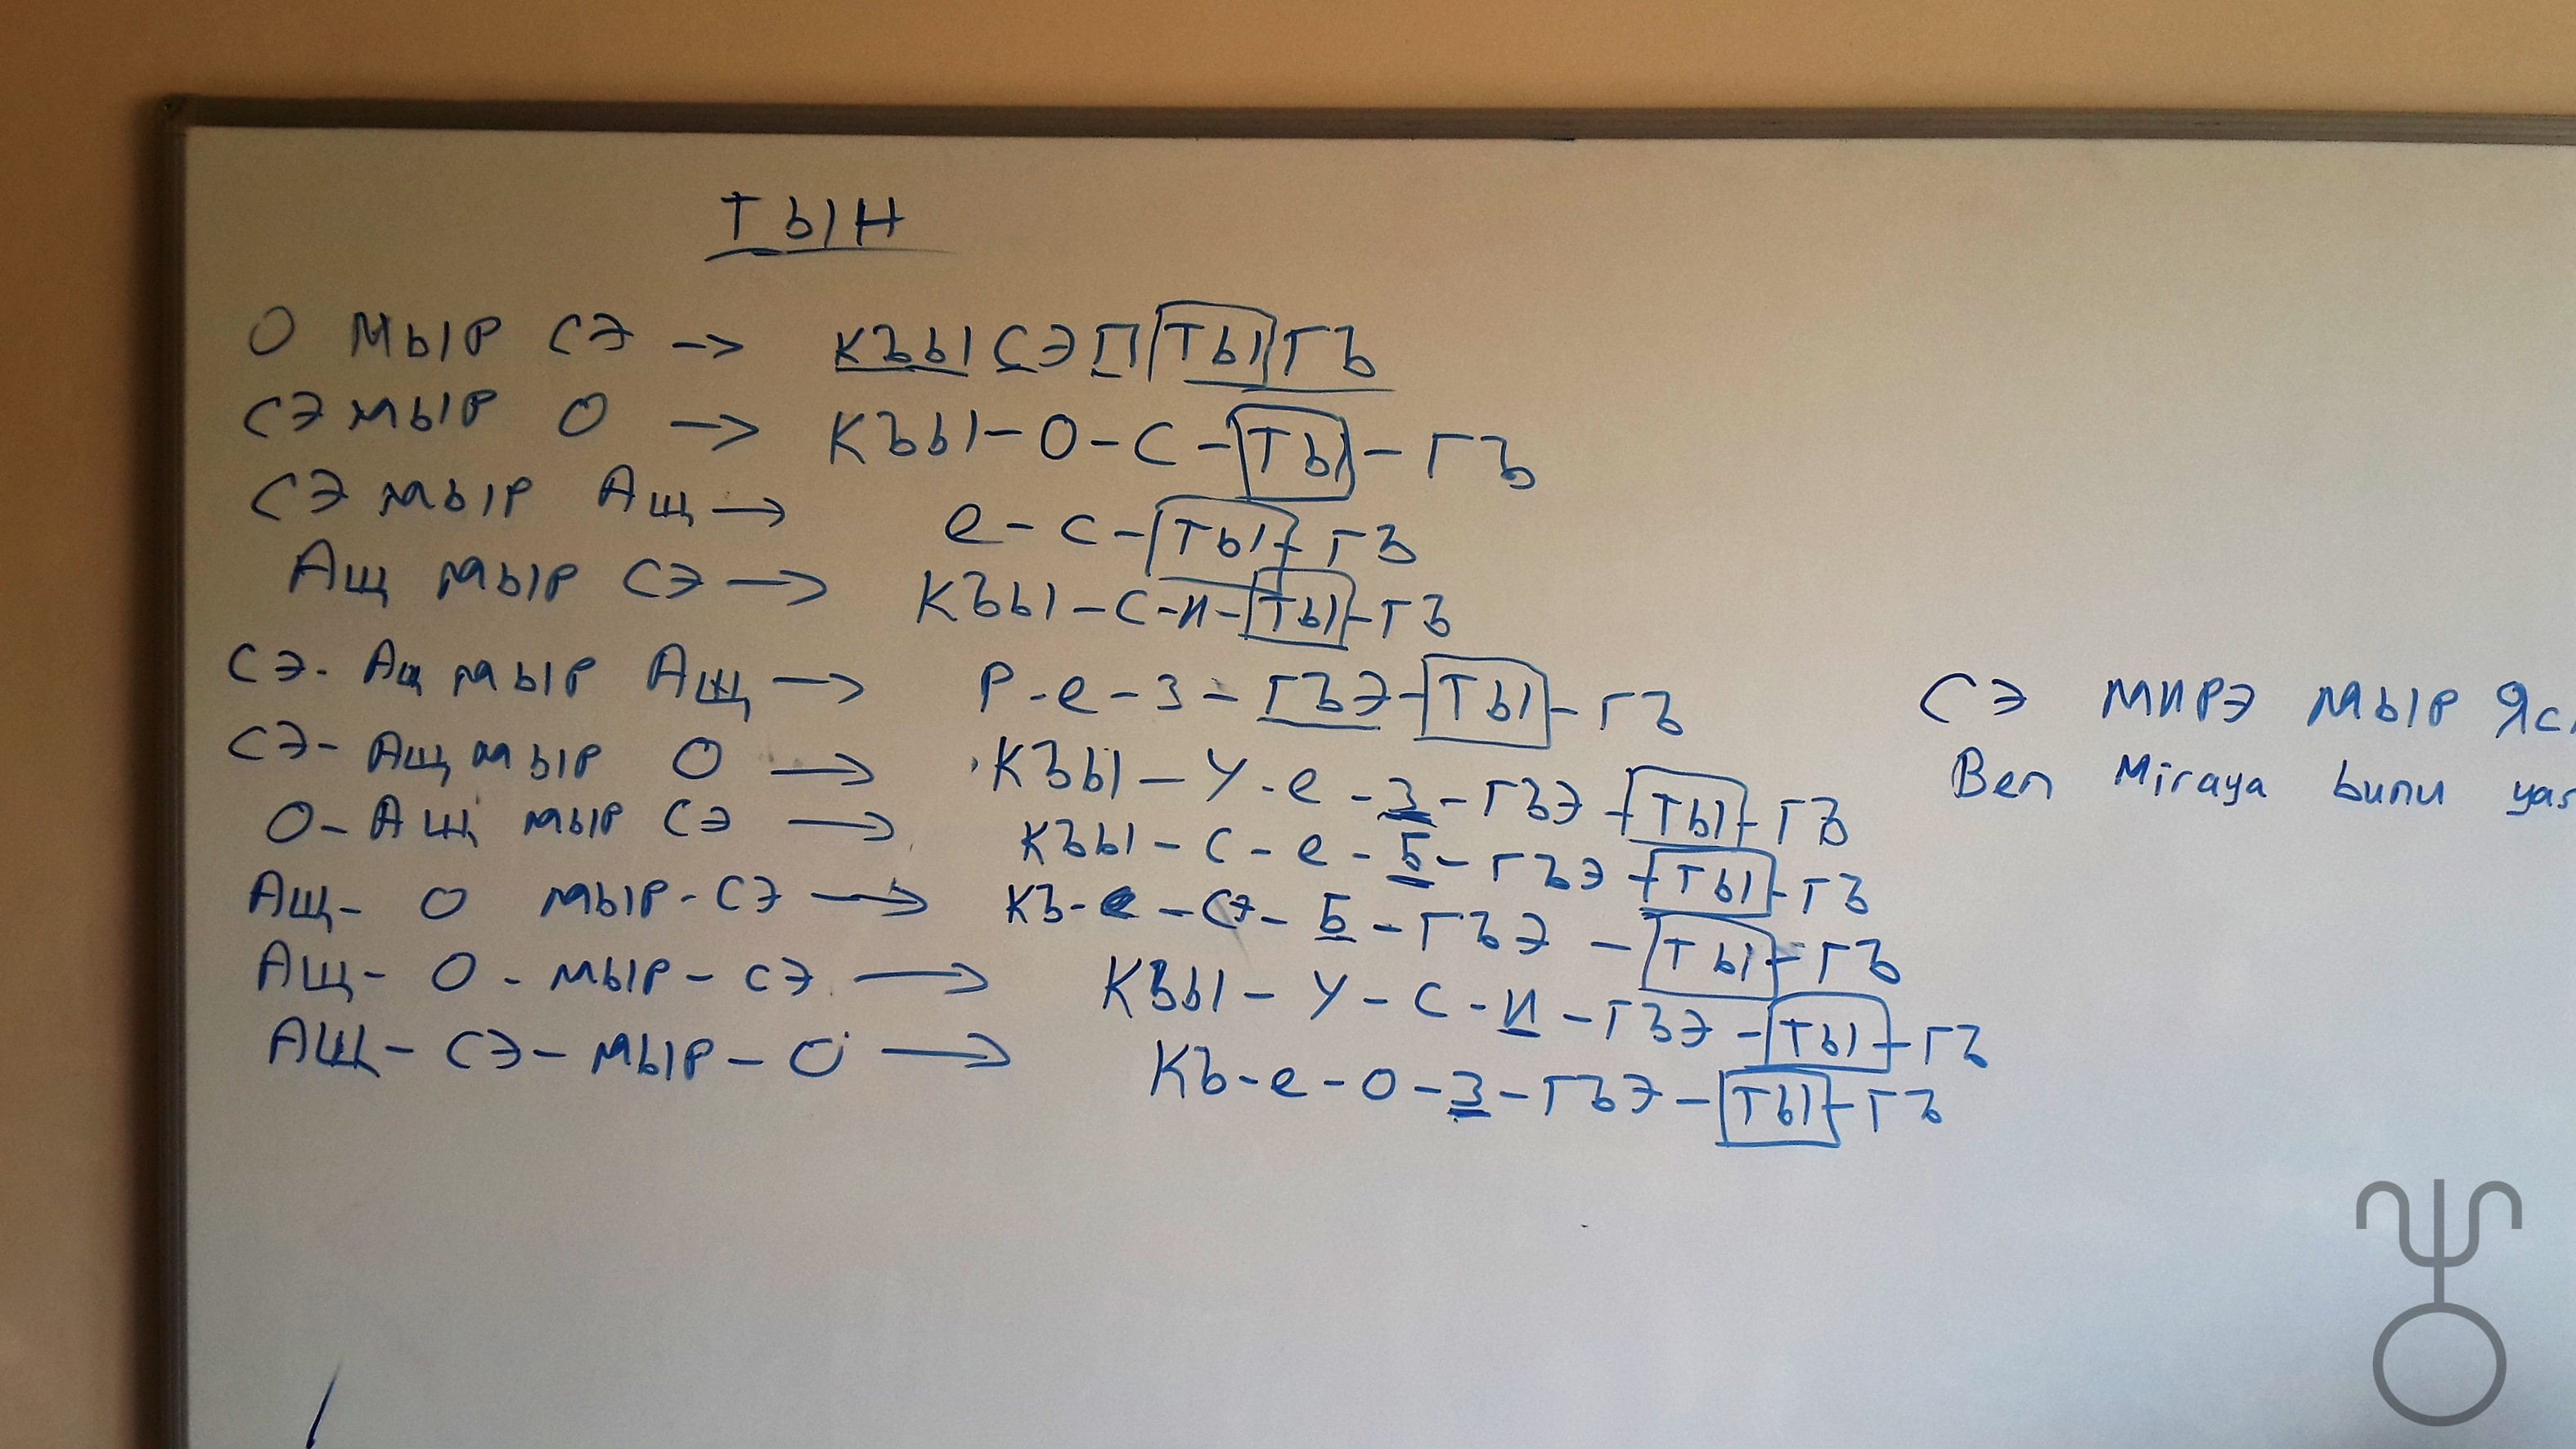 ТЫН
О МЫР СЭ → КЪЫСЭПТЫГЪ
СЭ МЫР О → КЪЫ-О-С-ТЫ-ГЪ
СЭ МЫР АЩ → е-С-ТЫ-ГЪ
АЩ МЫР СЭ → КЪЫ-С-И-ТЫ-ГЪ
СЭ- АЩ МЫР АЩ → Р-е-З-ГЪЭ-ТЫ-ГЪ
СЭ МИРЭ МЫР
СЭ- АЩ МЫР О → КЪЫ-У-е-З-ГЪЭ-ТЫ-ГЪ
Ben Miraya bunu
О- АЩ МЫР СЭ → КЪЫ-С-е-Б-ГЪЭ-ТЫ-ГЪ
АЩ- О МЫР-СЭ → КЪ-е-СЭ-Б-ГЪЭ-ТЫ-ГЪ
АЩ- О-МЫР-СЭ → КЪЫ-У-С-И-ГЪЭ-ТЫ-ГЪ
АЩ-СЭ-МЫР-О → КЪ-е-О-З-ГЪЭ-ТЫ-ГЪ